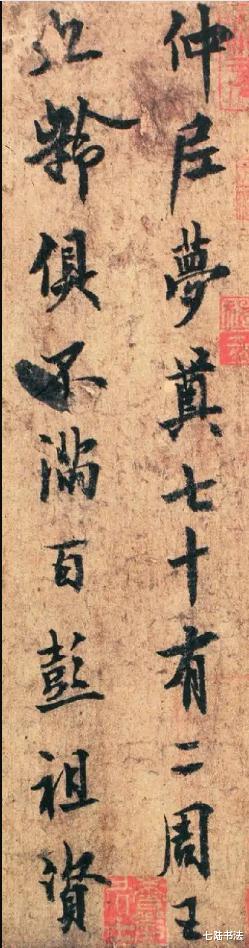 仲尼夢奠七十有二周王
九齡俱不滿百彭祖資
七陆书法